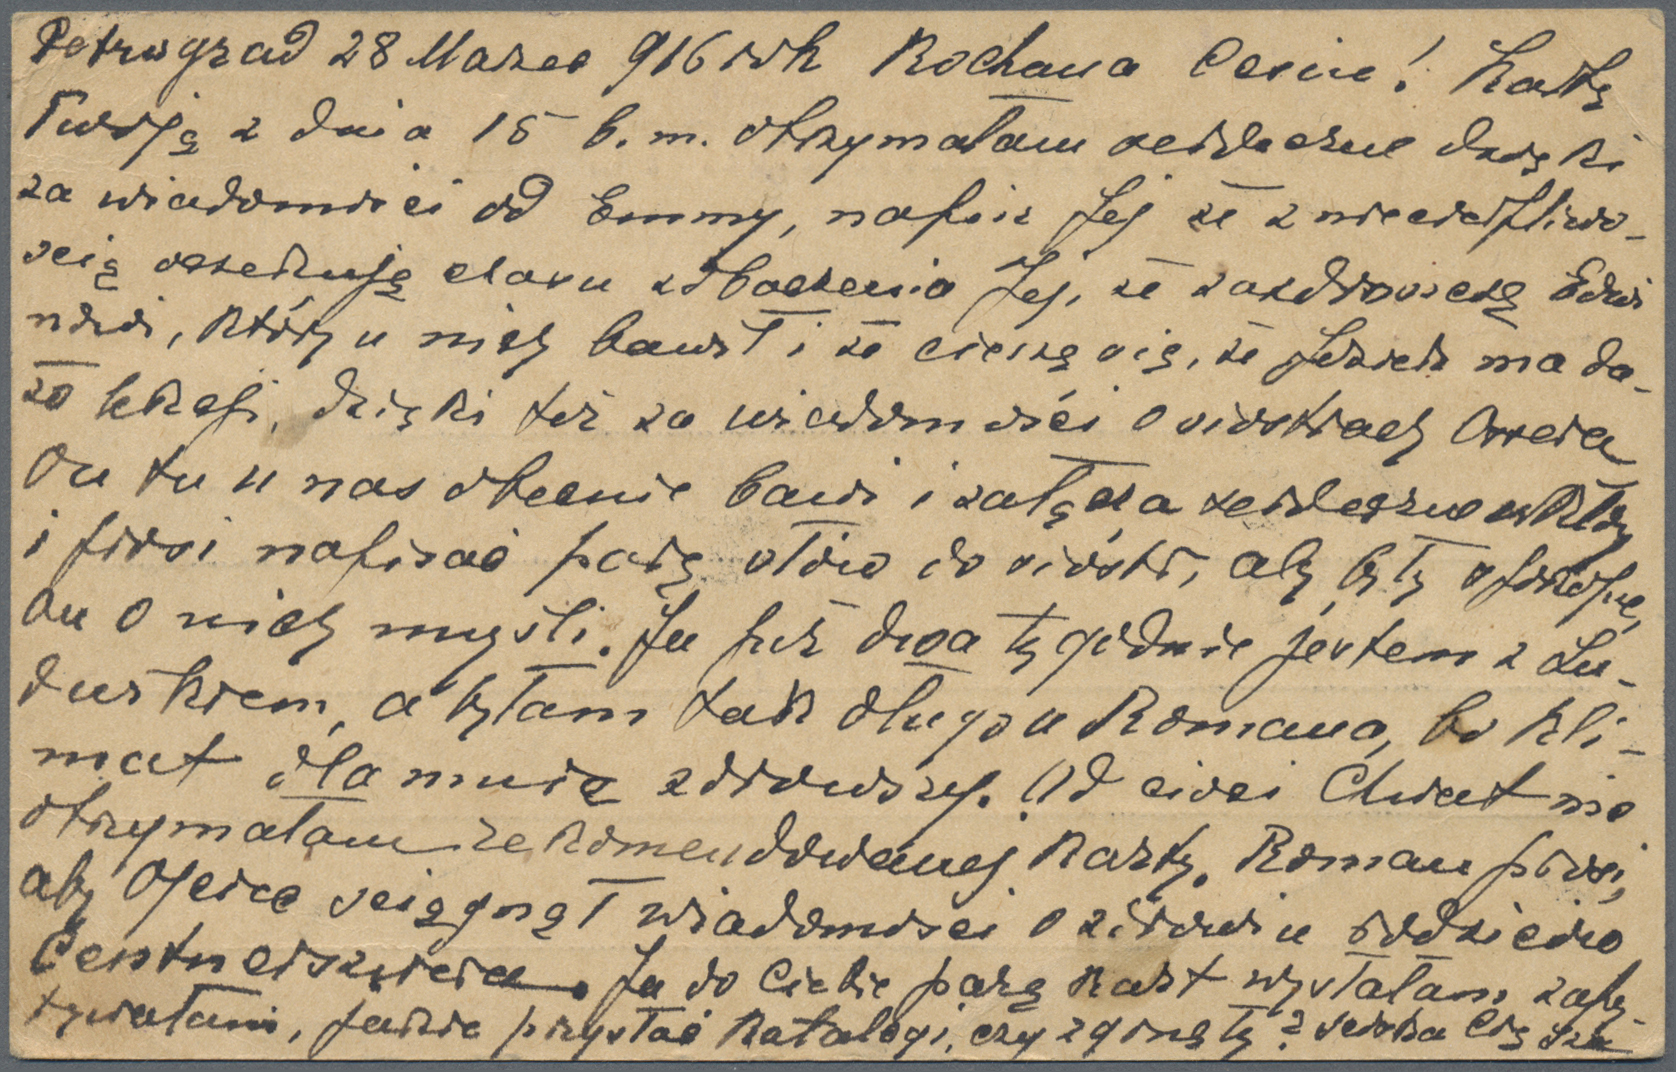 Petrograd 28 Marzec 916 rok Kochana Cesiu! Kartę
Twoją z dnia 15 b. m. otrzymałam serdeczne dzięki
za wiadomości od Emmy, napisz Jej że z niecierpliwo-
ścią oczekuję czasu zobaczenia Jej, że zazdroszczę Edwi
nowi, który u nich bawił i że cieszę się, że Jurek ma du-
żo lekcji, dzięki też za wiadomości o siostrach
On tu u nas obecnie bawi i załącza serdeczne ukłony
i prosi napisać parę słów do sióstr, aby były spokojne,
on o nich myśli. Ja już dwa tygodnie jestem z Lu-
dwikiem, a byłam tak długo u Romana, bo kli-
mat dla mnie zdrowszy. Od cioci Chwat nie
otrzymałam rekomendowanej karty. Roman prosi,
aby Ojciec sciągnął wiadomości o zdrowiu rodziców
Centnerszwera. Ja do Ciebie parę kart wysłałam zapy-
tywałam, jakie przysłać katalogi, czy zginęły?